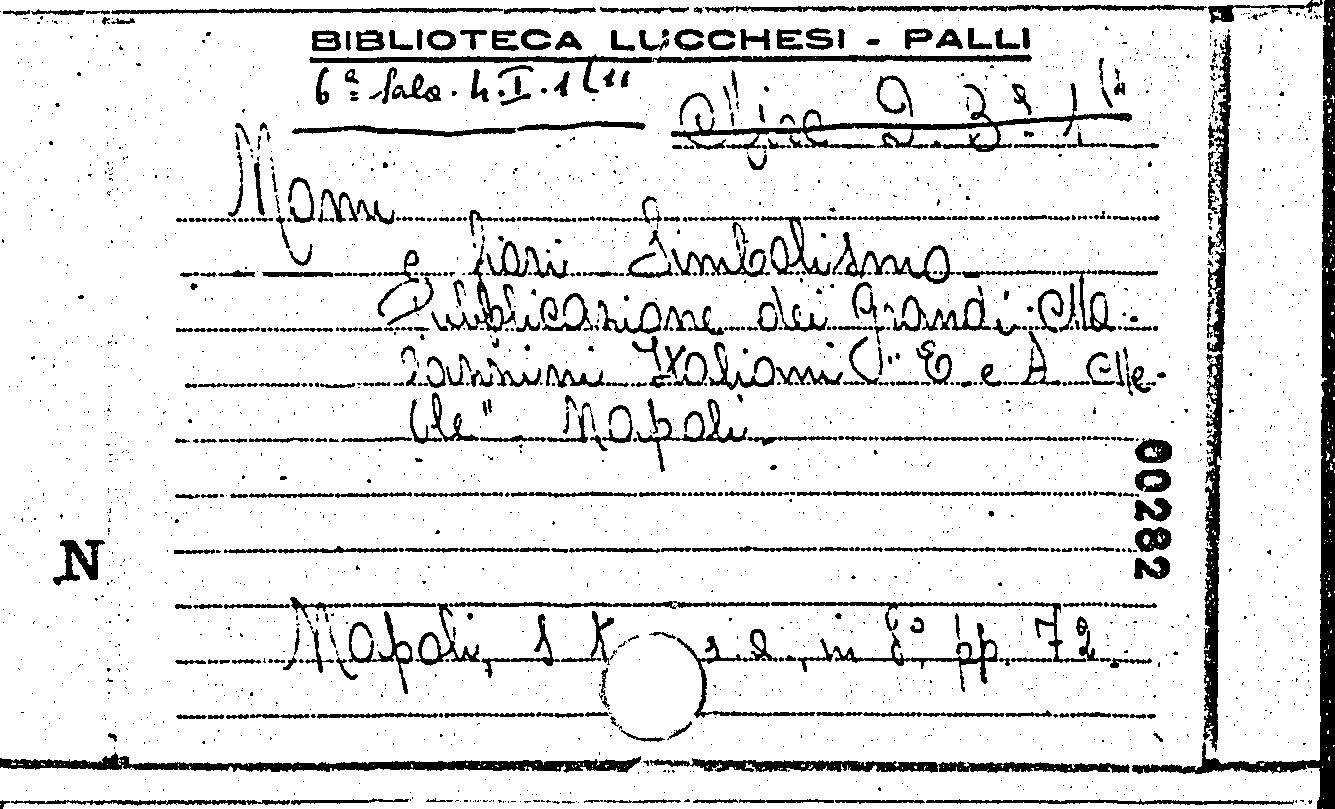 BIBLIOTECA LUCCHESI - PALLI
6ª Sala. 4. I. 1 (11
Nomi
e fiori Simbolismo.
Pubblicazione dei Grandi Ma-
gazzini Italiani "E. e A Me-
le" Napoli.
00282
N
Napoli, s. a., in 8°, pp. 72.